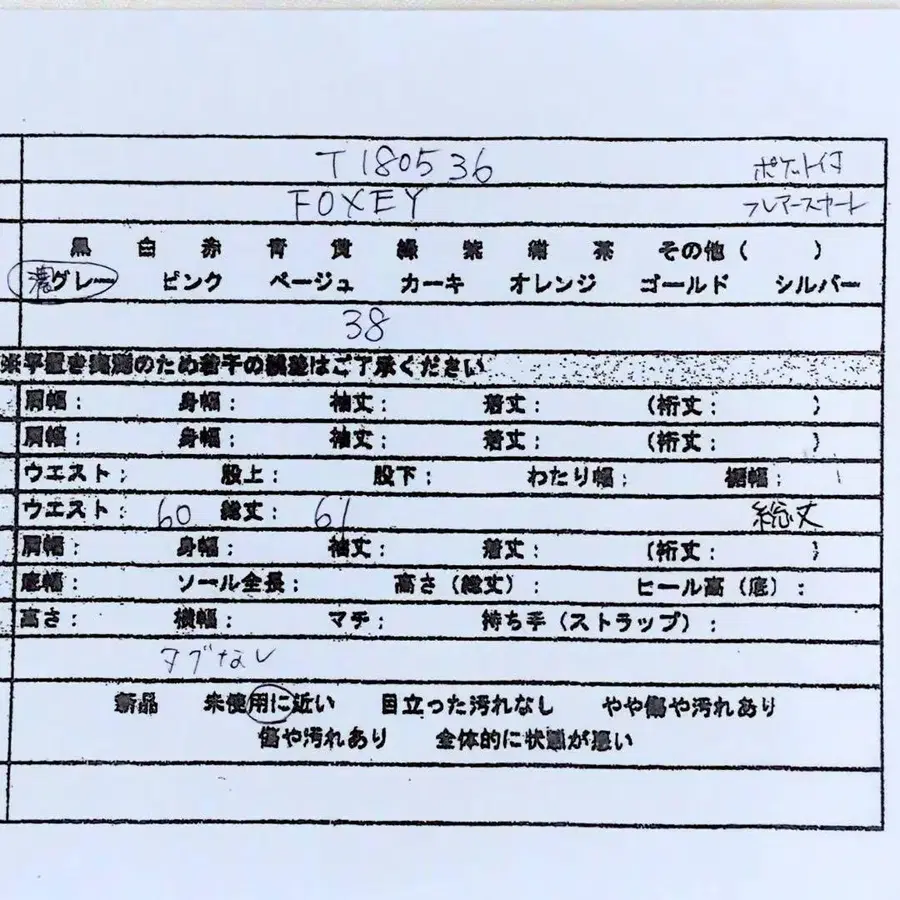 T180536 ポケット付
FOXEY フレアースカート
黒 白 赤 青 黄 緑 紫 紺 茶 その他( )
濃グレー ピンク ベージュ カーキ オレンジ ゴールド シルバー
38
※平置き実測のため若干の誤差はご了承ください
肩幅: 身幅: 袖丈: 着丈: (裄丈: )
肩幅: 身幅: 袖丈: 着丈: (裄丈: )
ウエスト: 股上: 股下: わたり幅: 裾幅:
ウエスト: 60 総丈: 61 総丈
肩幅: 身幅: 袖丈: 着丈: (裄丈: )
底幅: ソール全長: 高さ(総丈): ヒール高(底):
高さ: 横幅: マチ: 持ち手(ストラップ):
タグなし
新品 未使用に近い 目立った汚れなし やや傷や汚れあり
傷や汚れあり 全体的に状態が悪い